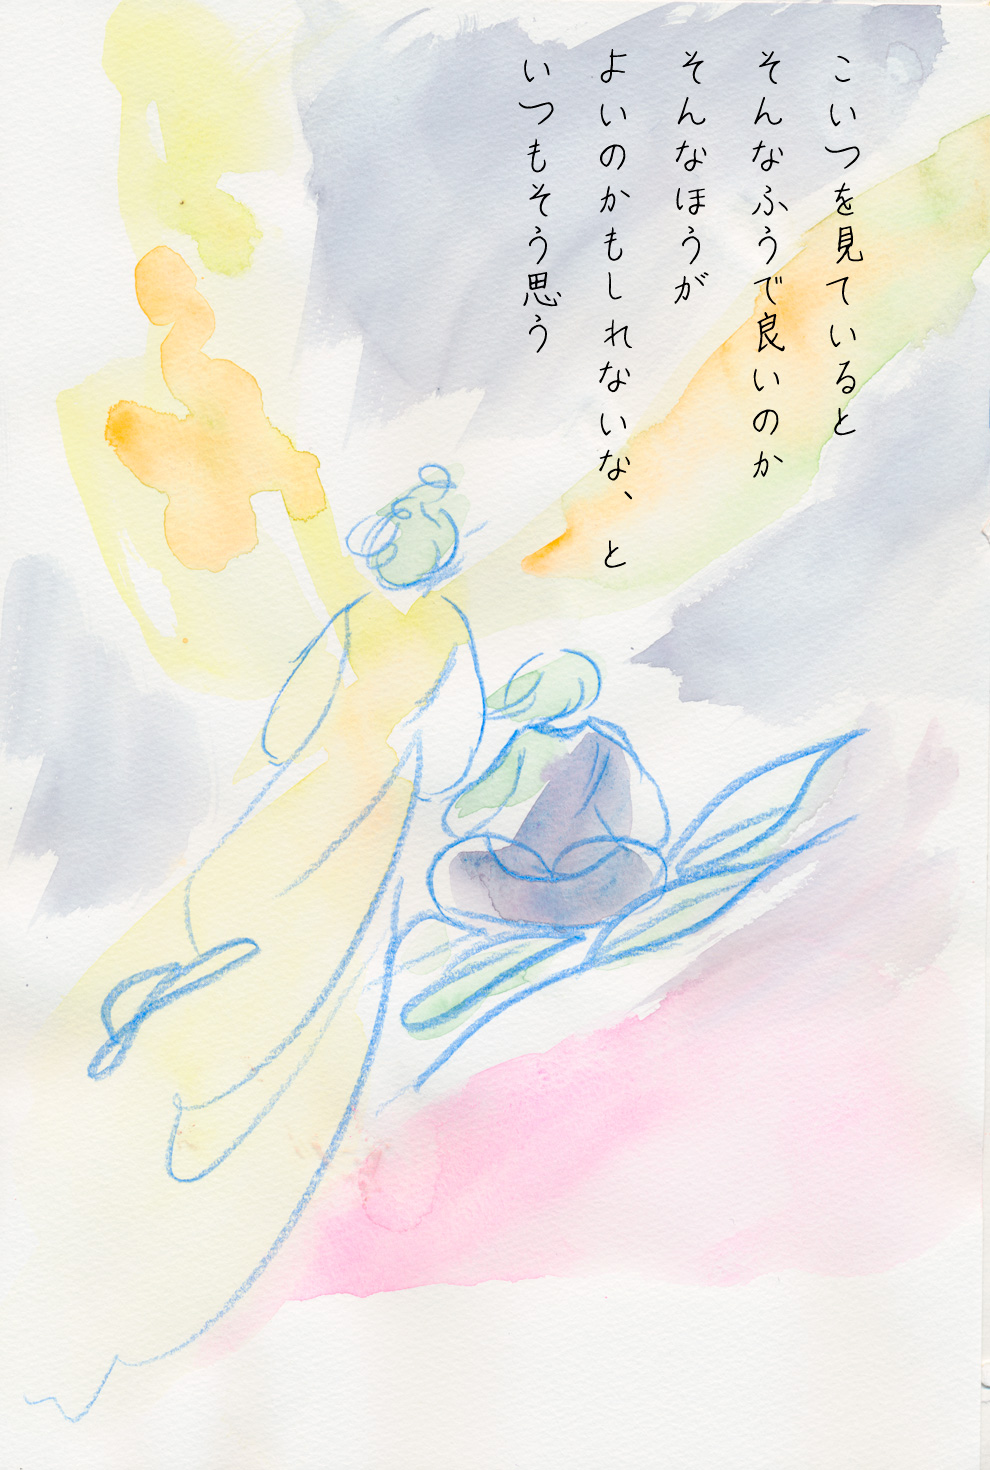 こいつを見ていると
そんなふうで良いのか
そんなほうが
よいのかもしれないな、と
いつもそう思う